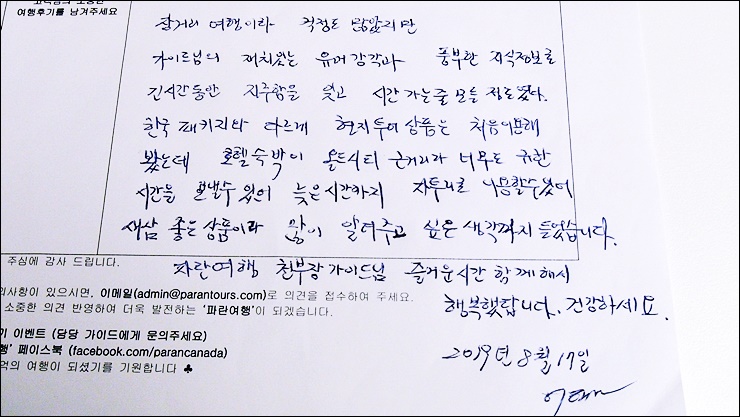 여행후기를 남겨주세요
장거리 여행이라 걱정도 많았지만
가이드님의 재치있는 유머감각과 풍부한 지식정보로
긴시간동안 지루함을 잊고 시간 가는줄 모를 정도였다.
한국 패키지와 다르게 현지투어 상품은 처음이용해
봤는데 호텔숙박이 올드시티 근거리라 너무도 귀한
시간을 보낼수 있어 늦은시간까지 자투리로 사용할수있어
새삼 좋은상품이라 많이 알려주고 싶은 생각까지 들었습니다.
주심에 감사 드립니다.
파란여행 천부장 가이드님 즐거운시간 함께해서
의사항이 있으시면, 이메일(admin@parantours.com)로 의견을 접수하여 주세요.
행복했답니다. 건강하세요.
소중한 의견 반영하여 더욱 발전하는 '파란여행'이 되겠습니다.
기 이벤트 (담당 가이드에게 문의주세요)
행' 페이스북 (facebook.com/parancanada)
2019년 8월 17일
억의 여행이 되셨기를 기원합니다 ♣